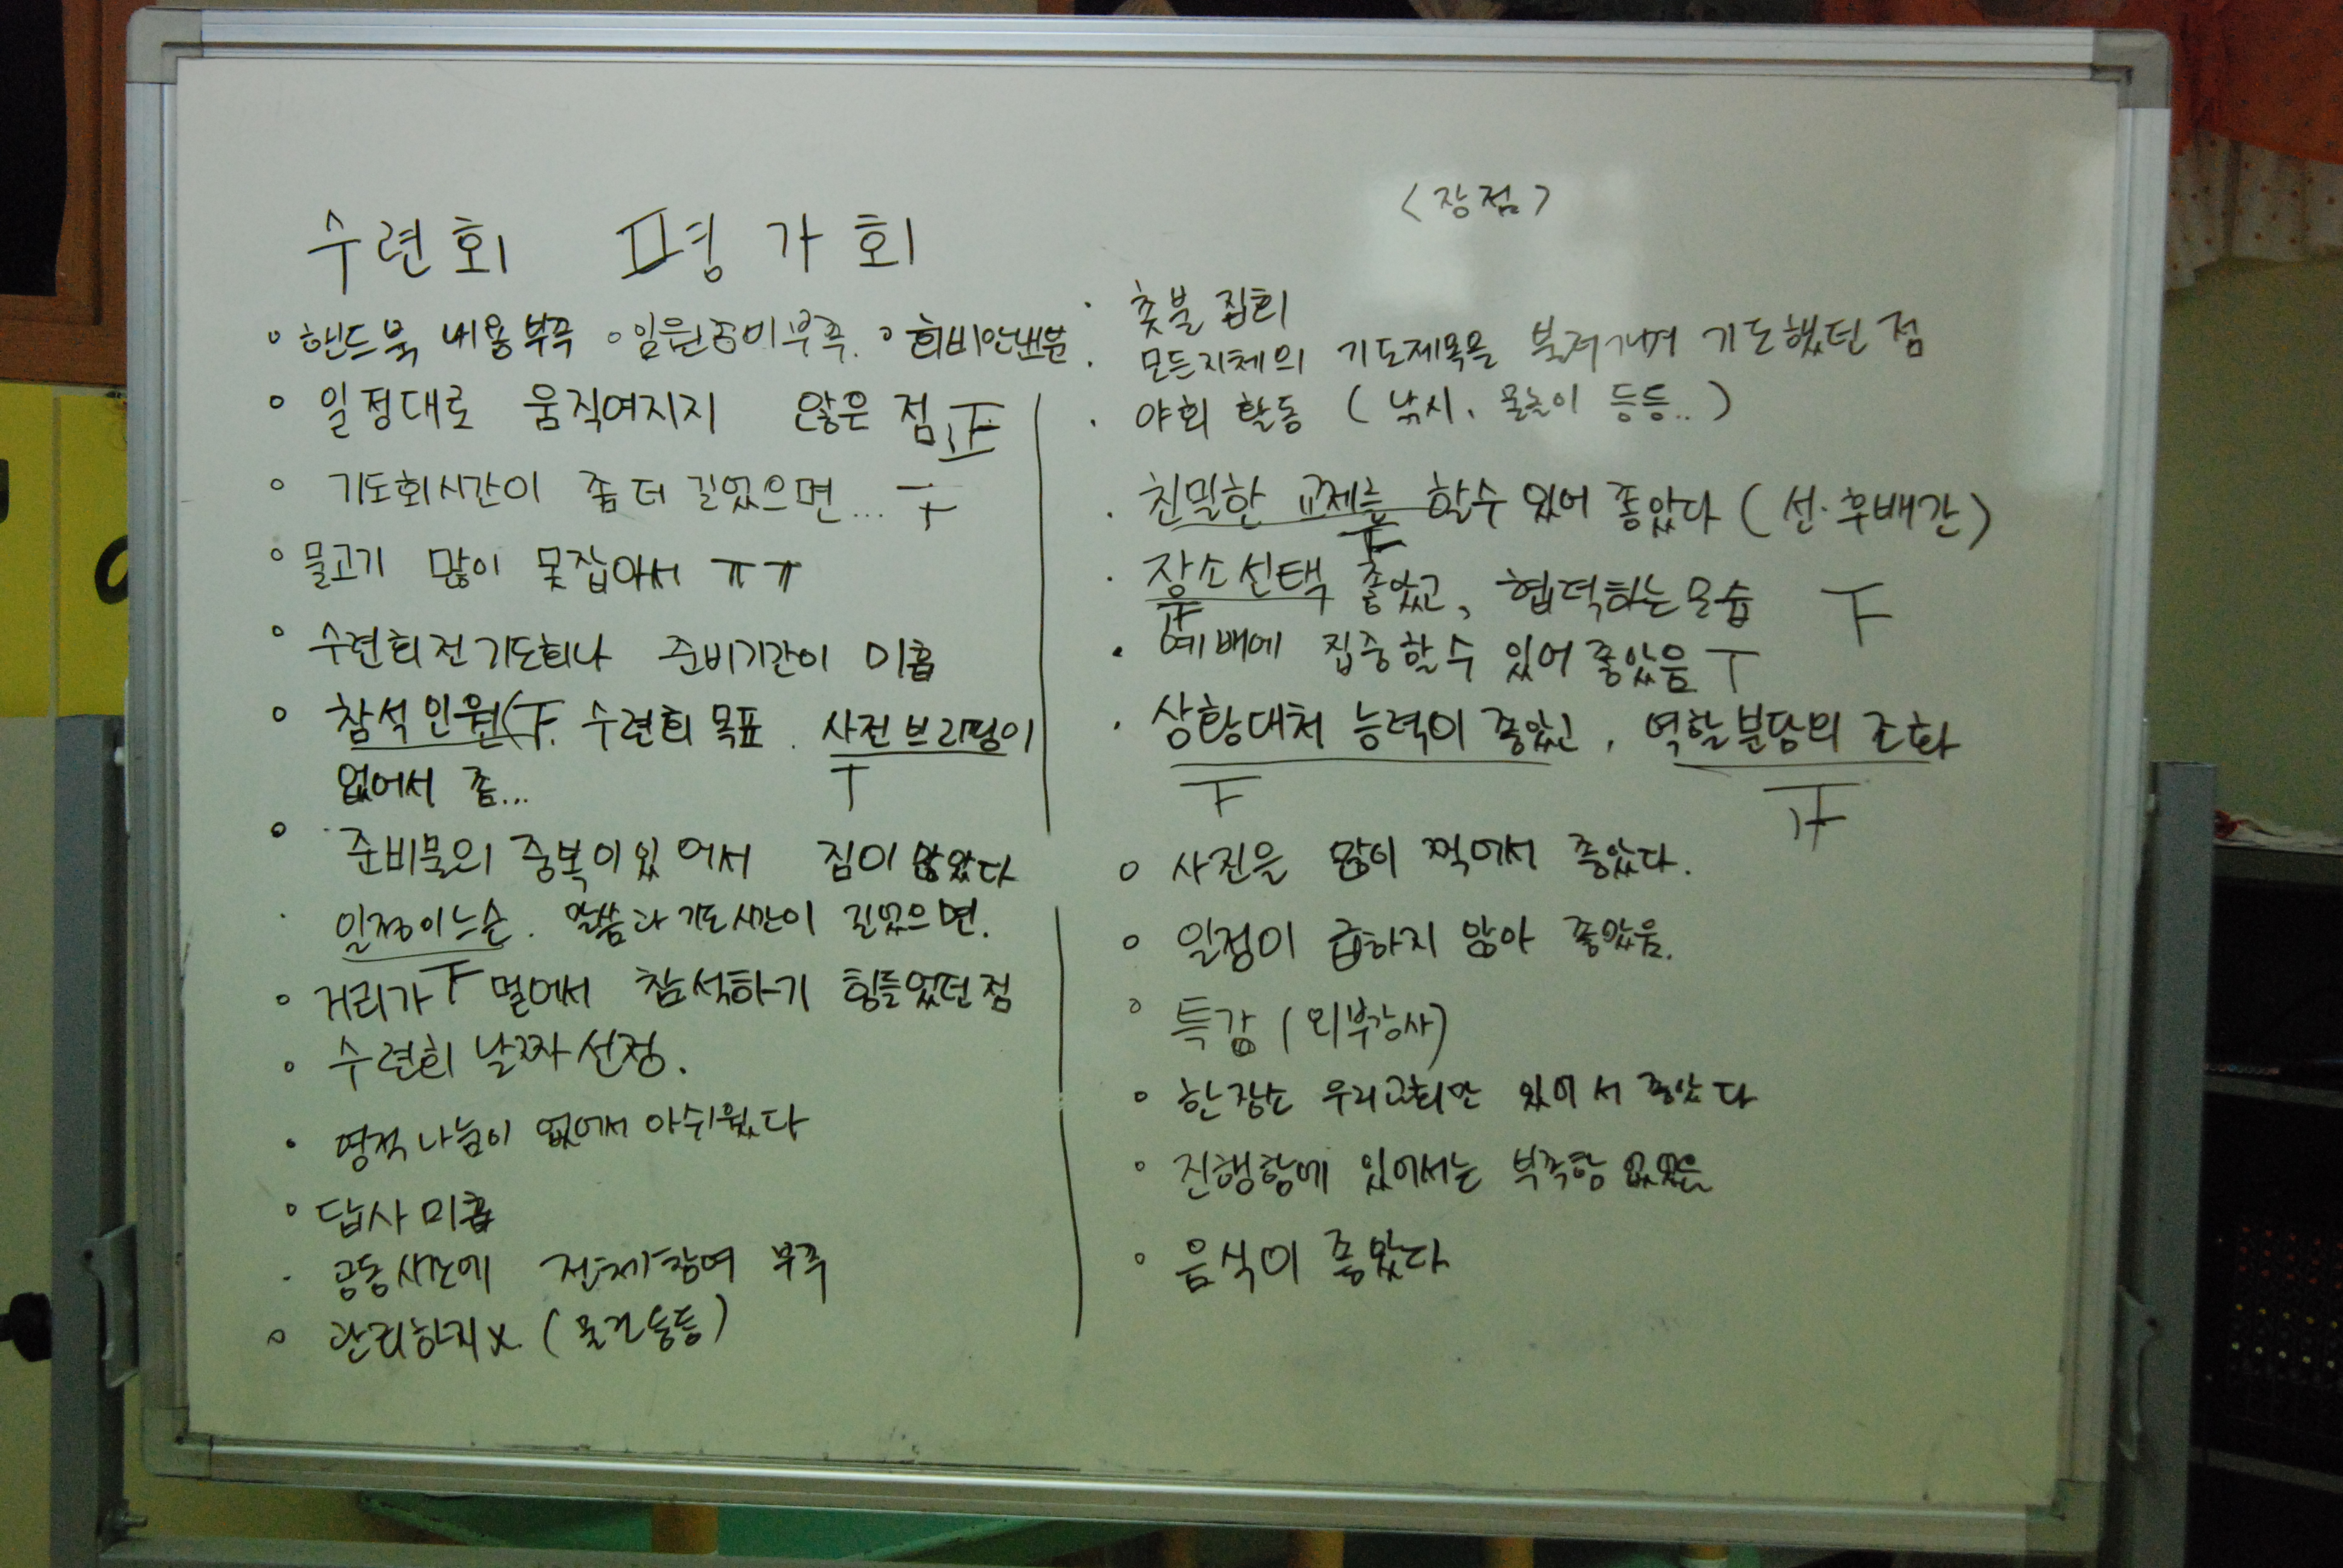 수련회 평가회
◦ 핸드북 내용부족 ◦ 임원준비부족. ◦ 회비안낸분
◦ 일정대로 움직여지지 않은 점
◦ 기도회시간이 좀 더 길었으면...
◦ 물고기 많이 못잡아서 ㅠㅠ
◦ 수련회전기도회나 준비기간이 미흡
◦ 참석인원( 수련회목표. 사전브리핑이
없어서 좀...
◦ 준비물의 중복이있어서 짐이 많았다
· 일정이느슨. 말씀과 기도시간이 길었으면.
◦ 거리가 멀어서 참석하기 힘들었던점
◦ 수련회 날짜선정.
• 영적나눔이 없어서 아쉬웠다
◦ 답사미흡
· 공동시간에 전체참여 부족
◦ 관리하지X. (물건등등)
<장점>
· 촛불집회
· 모든지체의 기도제목을 불러가며 기도했던 점
· 야회 활동 (낚시, 물놀이 등등..)
· 친밀한 교제를 할수 있어 좋았다 (선·후배간)
· 장소선택 좋았고, 협력하는모습
• 예배에 집중할수 있어 좋았음
· 상황대처 능력이 좋았고, 역할분담의 조화
◦ 사진을 많이 찍어서 좋았다.
◦ 일정이 급하지 않아 좋았음.
◦ 특강 (외부강사)
◦ 한장소 우리교회만 있어서 좋았다
◦ 진행함에 있어서는 부족함 없었음
◦ 음식이 좋았다